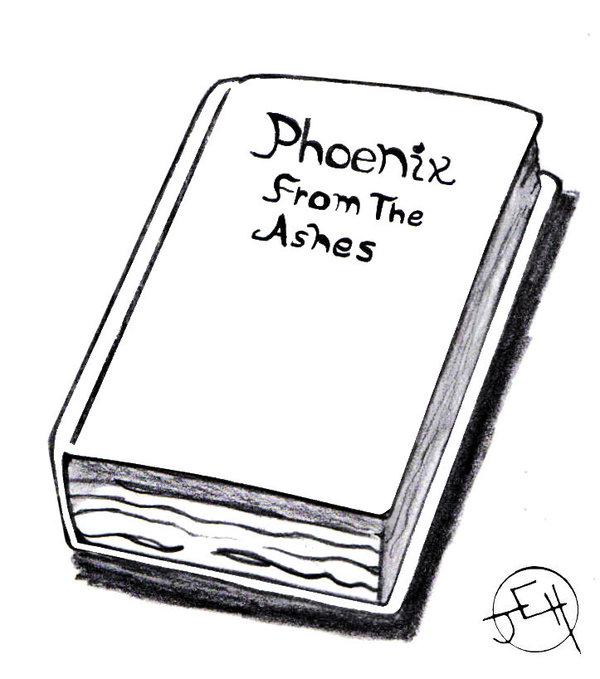 Phoenix
From The
Ashes
JEH